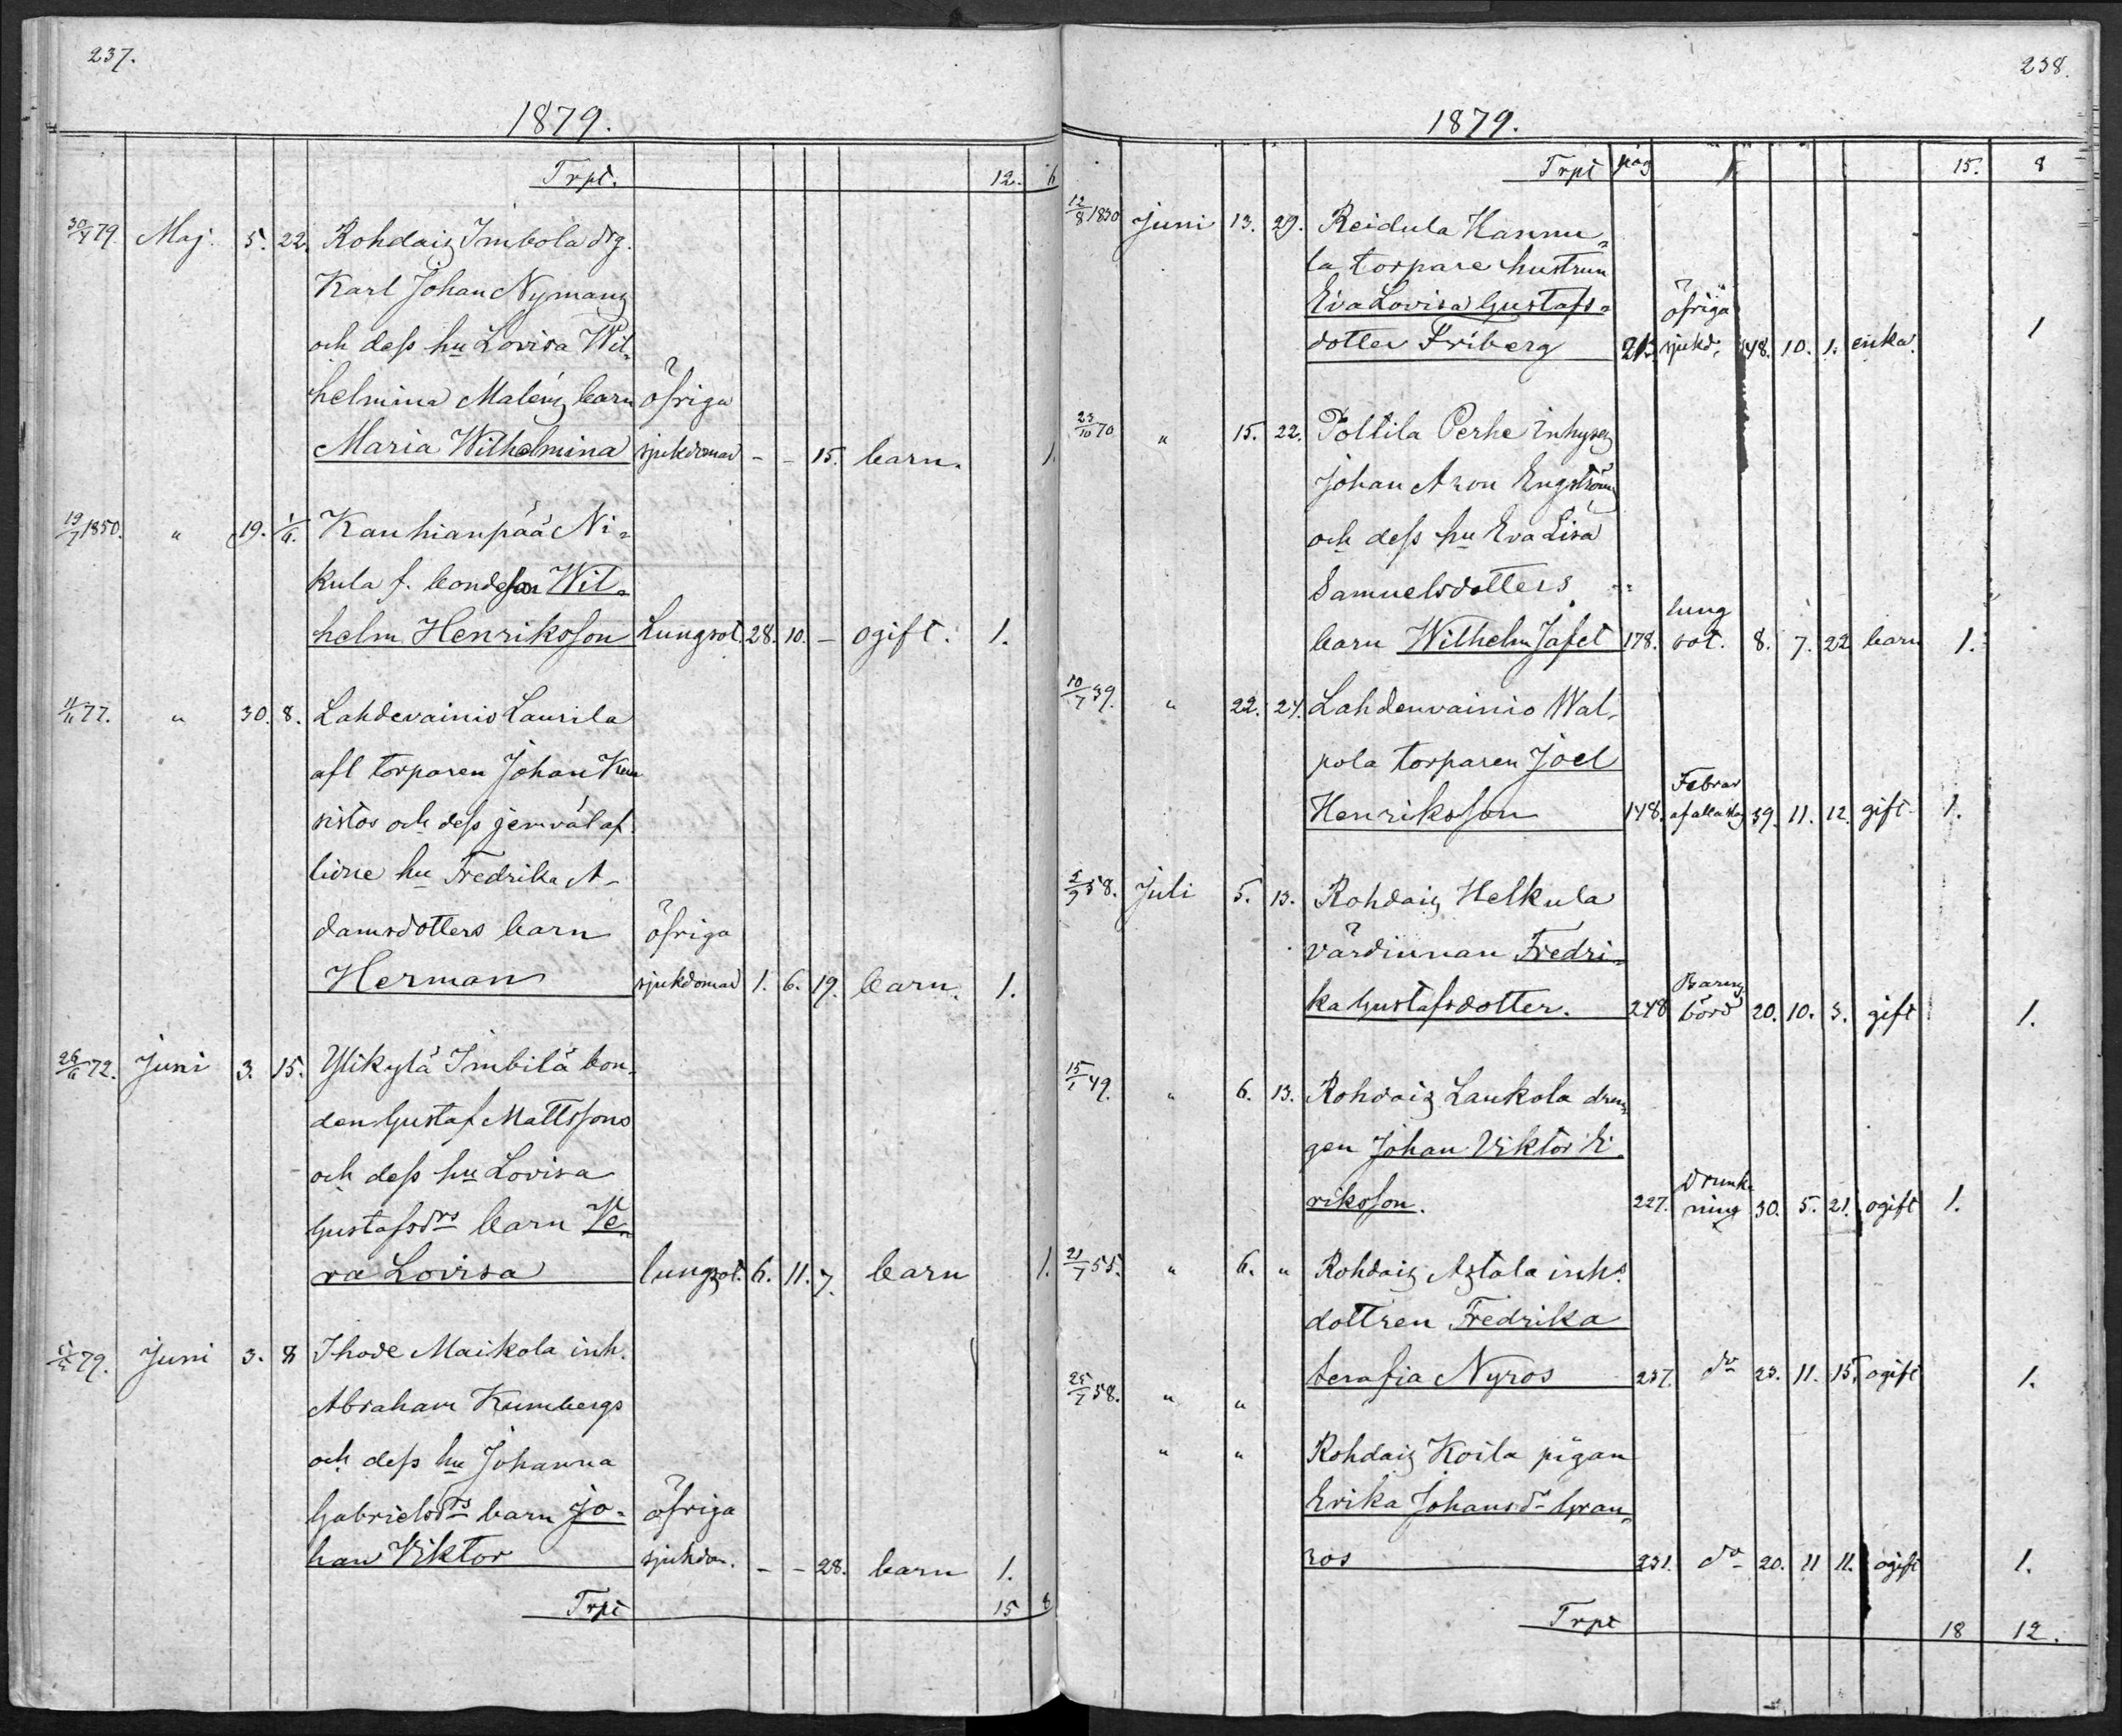 237.
1879.
Trpt. 12. 6
30/4 79. Maj. 5. 22. Rohdais Imbola drg.
Karl Johan Nymans
och dess hu Lovisa Wil-
helmina Maléns barn öfriga
Maria Wilhelmina sjukdomar - - 15. barn. 1.
19/7 1850. " 19. 1/6. Kauhianpää Ni-
kula f. bondeson Wil-
helm Henriksson Lungsot. 28. 10. - ogift. 1.
11/11 77. " 30. 8. Lahdevainio Laurila
afl torparen Johan
och dess jemväl af
lidne hu Fredrika A-
damsdotters barn öfriga
Herman sjukdomar 1. 6. 19. barn. 1.
26/6 72. Juni 3. 15. Ylikylä Imbilä bon-
den Gustaf Mattssons
och dess hu Lovisa
Gustafsdrs barn Ve-
ra Lovisa lungsot. 6. 11. 7. barn 1.
79. Juni 3. 8 Ihode Maikola inh.
Abraham Kumbergs
och dess hu Johanna
Gabrielsdrs barn Jo- öfriga
han Viktor sjukdom. - - 28. barn 1.
Trpt 15 8
238.
1879.
Trpt pag 15. 8
12/8 1830 Juni 13. 29. Reidula Hannu-
la torpare hustrun
Eva Lovisa Gustafs- öfriga
dotter Friberg 213. sjukd. 48. 10. 1. enka. 1
23/10 70 " 15. 22. Polttila Perhe inhyses
Johan Aron Engströms
och dess hu Eva Lisa
Samuelsdotters lung
barn Wilhelm Jafet 178. sot. 8. 7. 22 barn 1.
10/7 39. " 22. 24. Lahdenvainio Wal-
pola torparen Joel Febrar
Henriksson 148. af alla slag 39. 11. 12. gift 1.
2/9 58. Juli 5. 13. Rohdais Helkula
värdinnan Fredri- Barns
ka Gustafsdotter. 248 börd 20. 10. 3. gift 1.
15/1 49. " 6. 13. Rohdais Laukola dren-
gen Johan Viktor E- Drunk-
riksson. 227. ning 30. 5. 21. ogift 1.
21/7 55. " 6. " Rohdais Aztala inhs
dottren Fredrika
Serafia Nyros 237. do 23. 11. 15. ogift 1.
25/7 58. " "
" " Rohdais Koila pigan
Erika Johansdr Gran-
ros 231. do 20. 11 11. ogift 1.
Trpt 18 12.